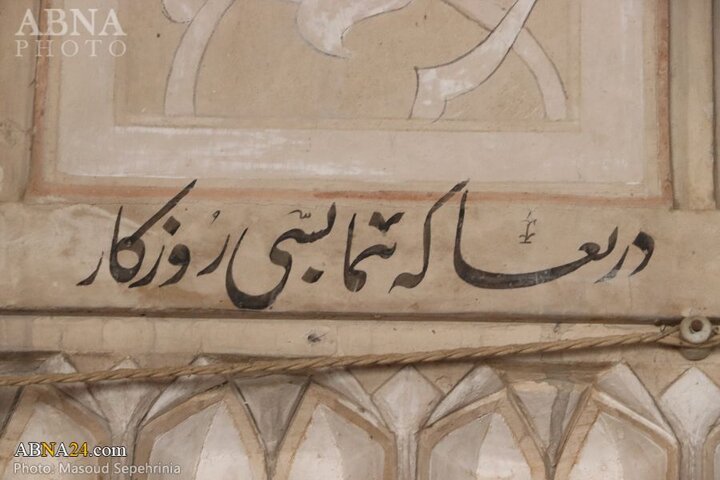 ABNA
PHOTO
دریغا که بیما بسّی رُوزکار
ABNA24.com
Photo: Masoud Sepehrinia